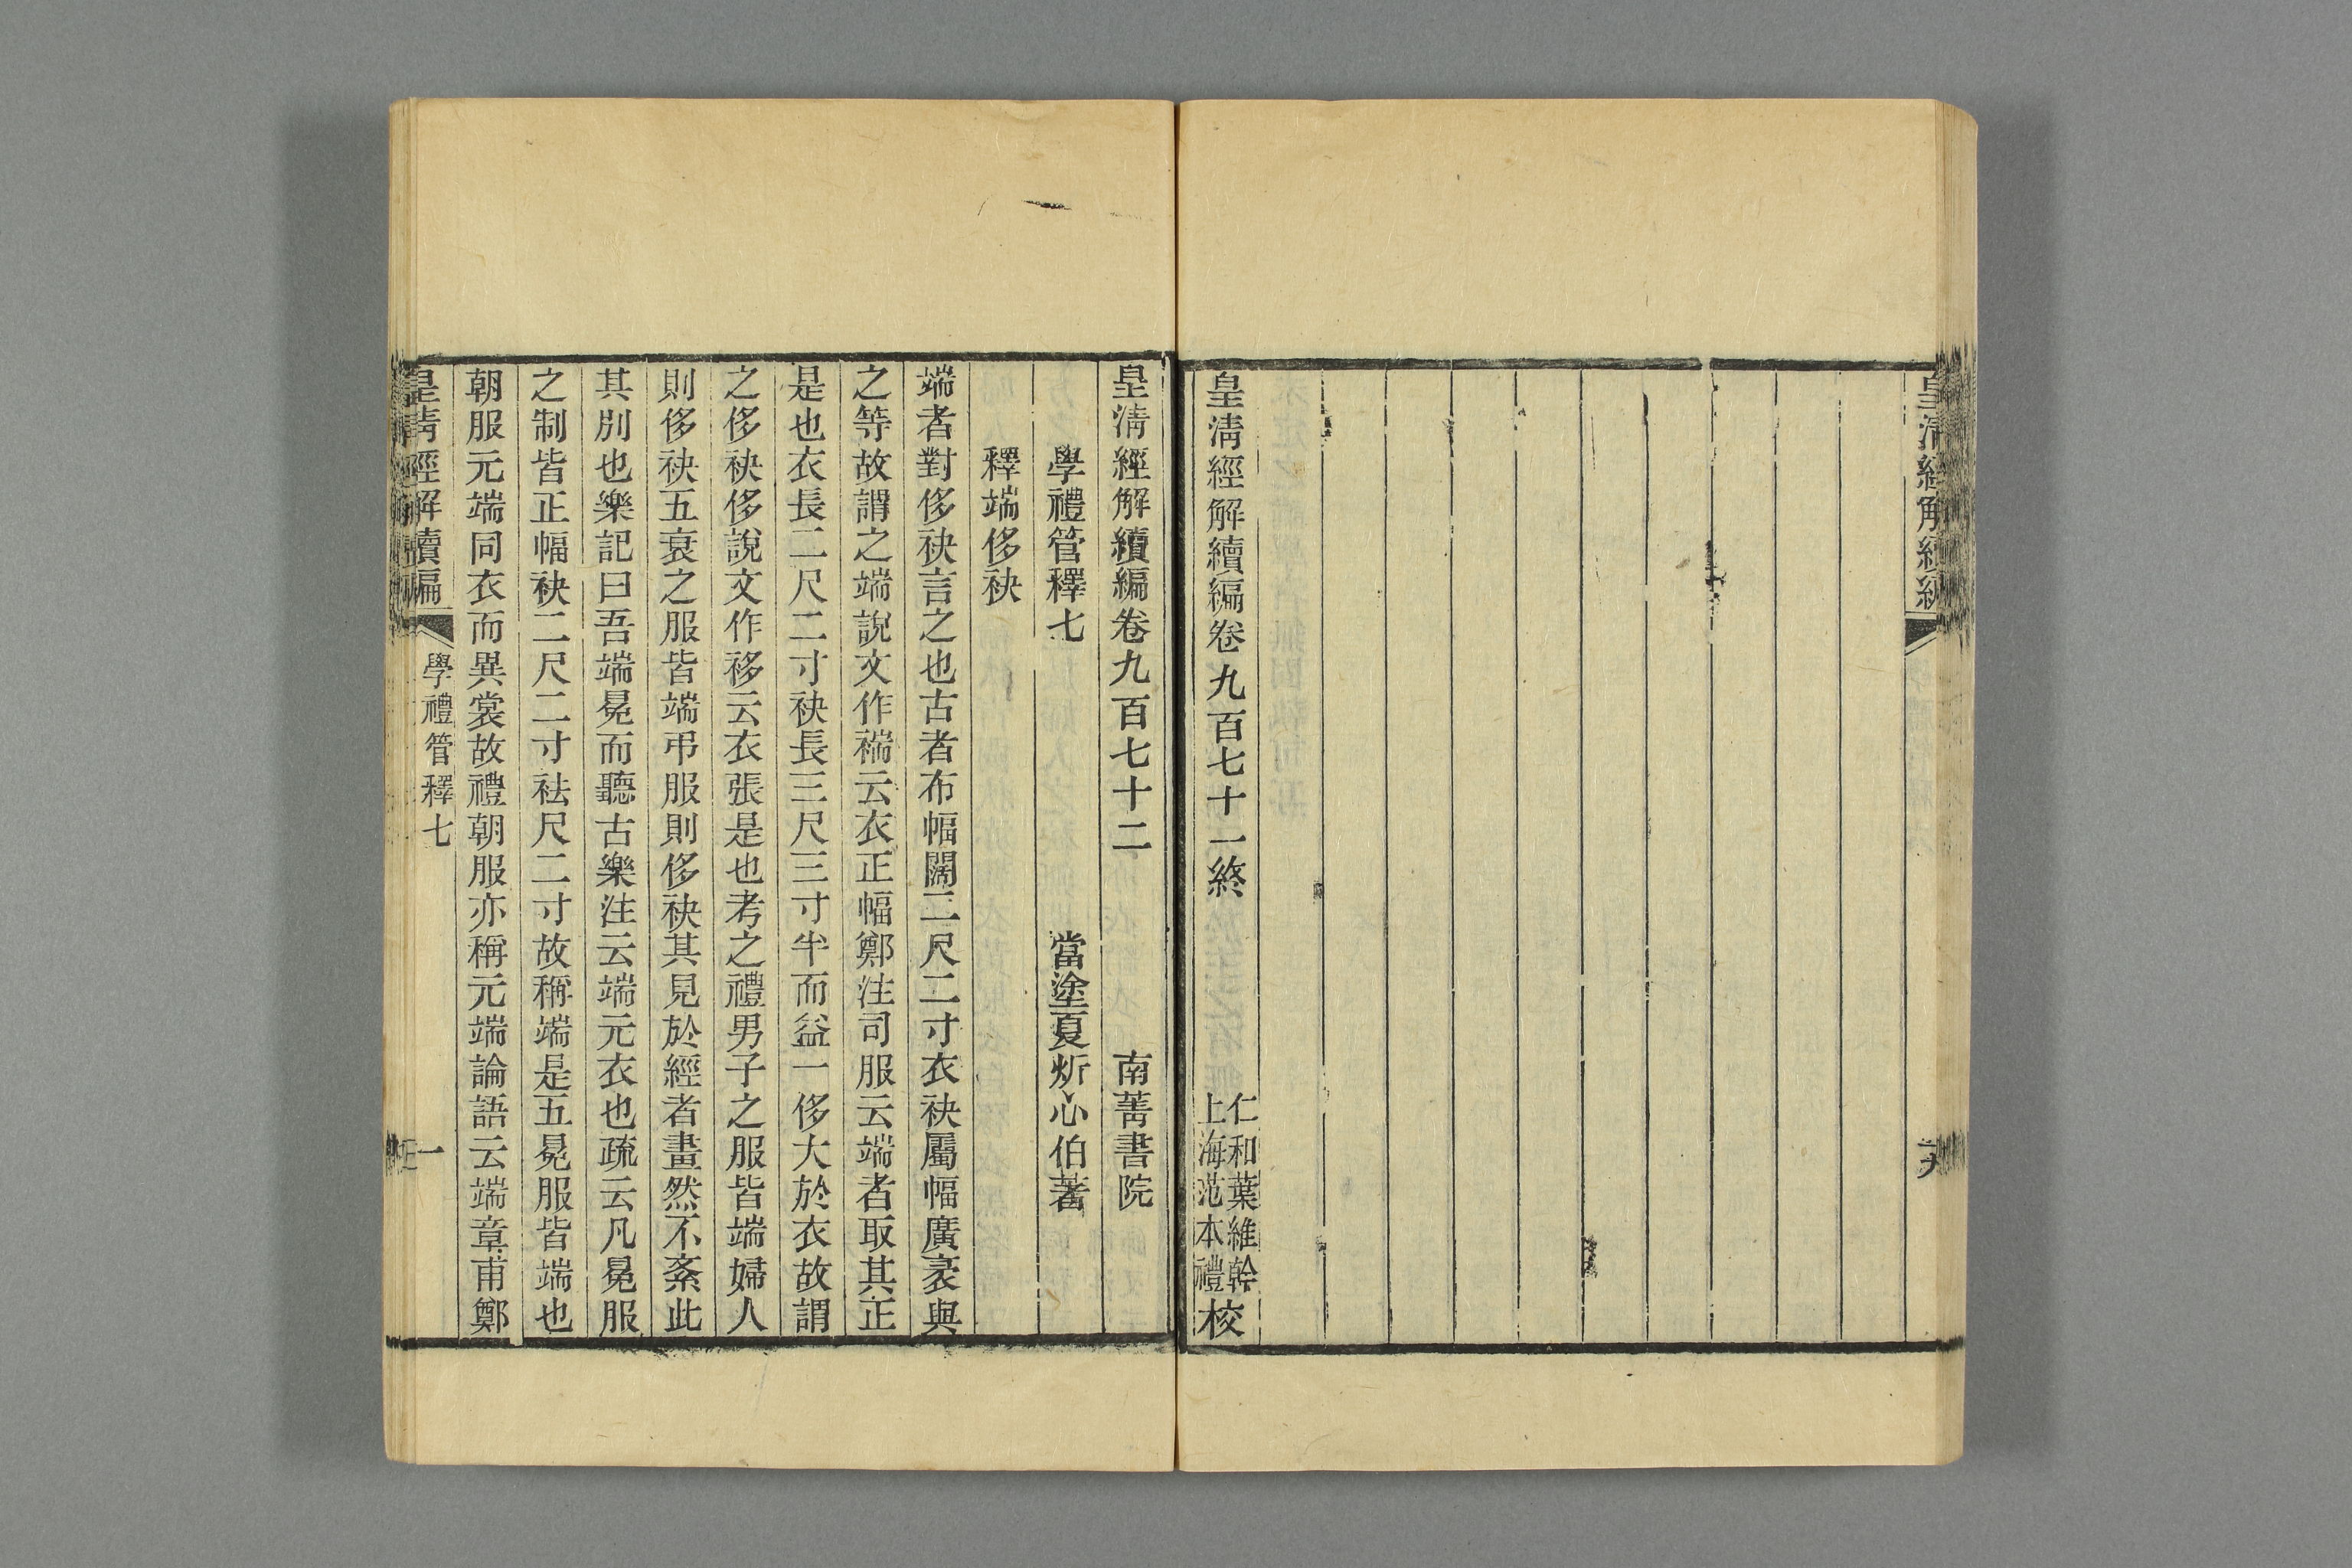 皇清經解續編
十九
皇清經解續編卷九百七十一終
仁和葉維幹
上海范本禮
校
皇清經解續編卷九百七十二 南菁書院
學禮管釋七 當塗夏炘心伯著
釋端侈袂
端者對侈袂言之也古者布幅闊二尺二寸衣袂屬幅廣袤與
之等故謂之端說文作褍云衣正幅鄭注司服云端者取其正
是也衣長二尺二寸袂長三尺三寸半而益一侈大於衣故謂
之侈袂侈說文作移云衣張是也考之禮男子之服皆端婦人
則侈袂五衰之服皆端弔服則侈袂其見於經者畫然不紊此
其別也樂記曰吾端冕而聽古樂注云端元衣也疏云凡冕服
之制皆正幅袂二尺二寸袪尺二寸故稱端是五冕服皆端也
朝服元端同衣而異裳故禮朝服亦稱元端論語云端章甫鄭
皇清經解續編
學禮管釋七
一